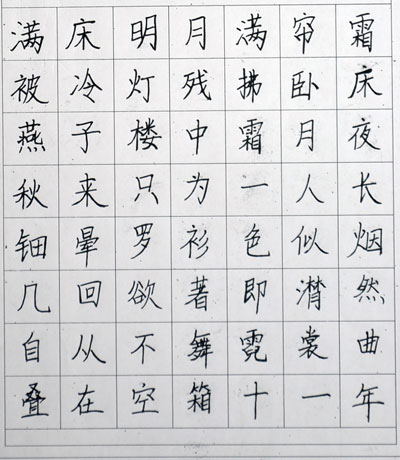 满床明月满帘霜
被冷灯残拂卧床
燕子楼中霜月夜
秋来只为一人长
钿晕罗衫色似烟
几回欲著即潸然
自从不舞霓裳曲
叠在空箱十一年